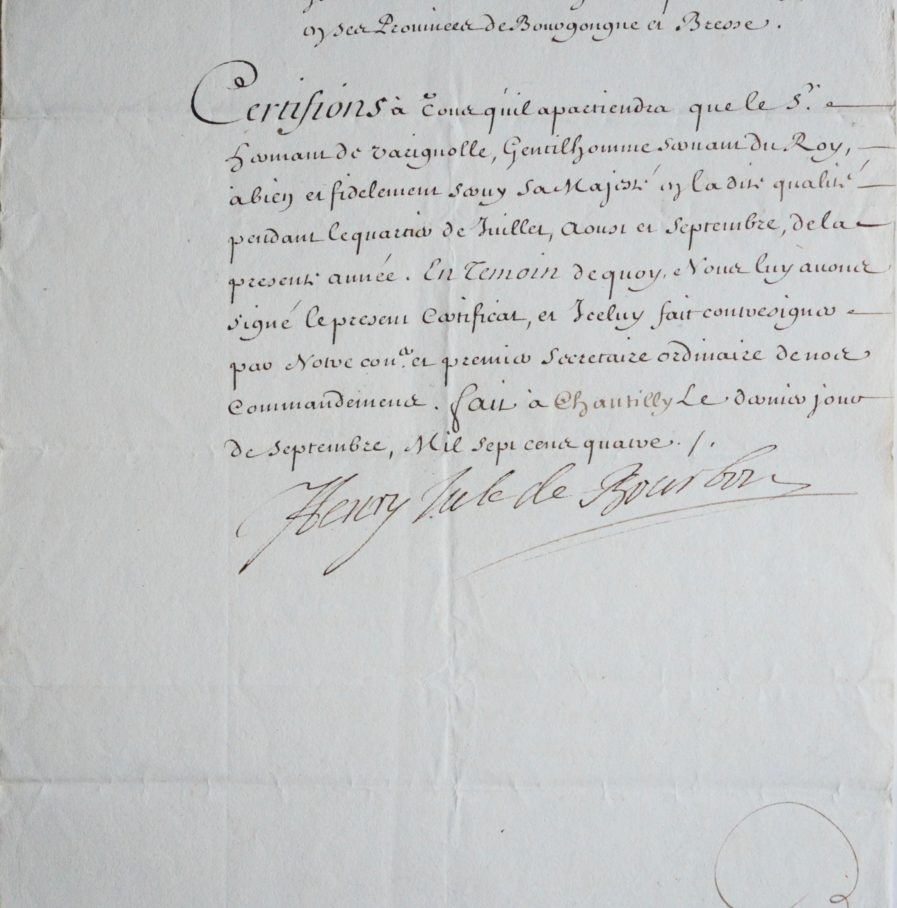 en ses Provinces de Bourgongne et Bresse.
Certifions à tous qu'il apartiendra que le Sr.
de Varignolle, Gentilhomme servant du Roy,
à bien et fidelement servy Sa Majesté en la dite qualité
pendant le quartier de Juillet, Aoust et Septembre, de la
presente année. En Temoin de quoy, Nous luy avons
signé le present Certificat, et Iceluy fait contresigner
par Notre coner. et premier Secretaire ordinaire de nos
Commandemens. fait à Chantilly Le dernier jour
de Septembre, Mil sept cens quatre ./.
Henry Jule de Bourbon